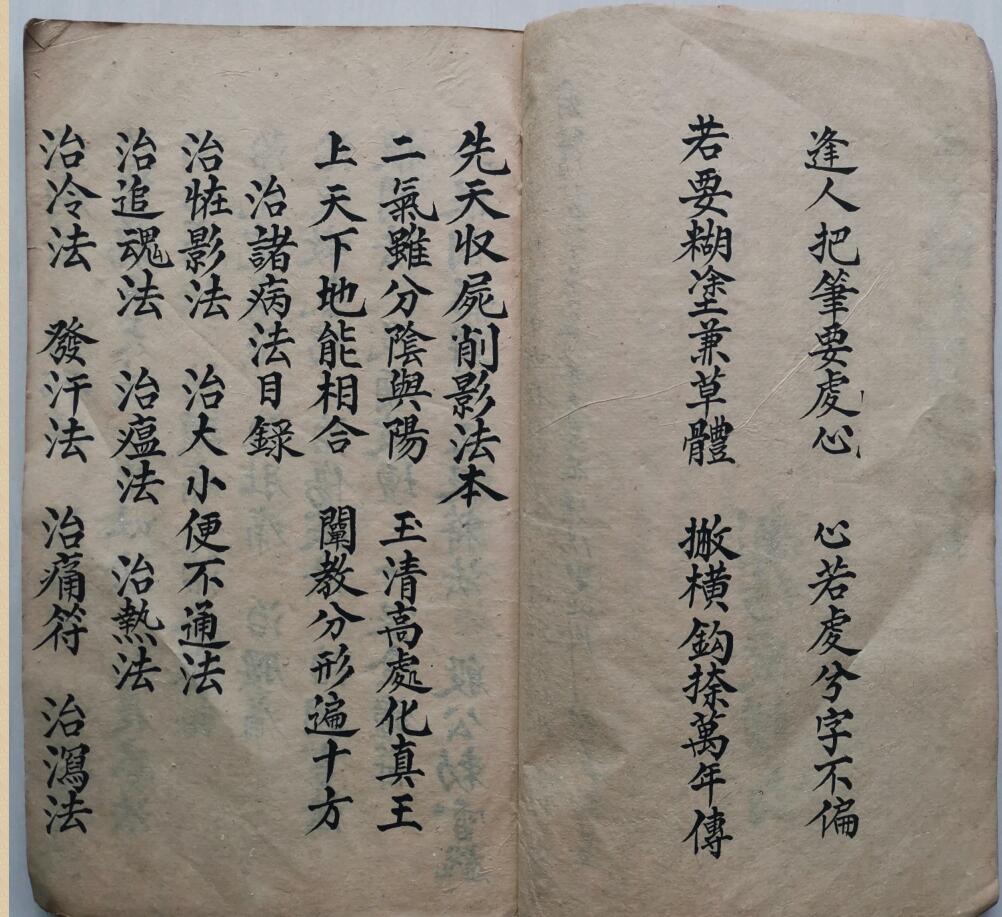 逢人把筆要虔心 心若虔兮字不偏
若要糊塗兼草體 撇横鈎捺萬年傳
先天收屍削影法本
二氣雖分陰與陽 玉清高處化真王
上天下地能相合 闡教分形遍十方
治諸病法目録
治恠影法 治大小便不通法
治追魂法 治瘟法 治熱法
治冷法 發汗法 治痛符 治瀉法